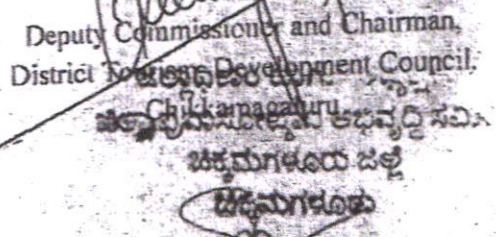 Deputy Commissioner and Chairman,
District Tourism Development Council,
Chikkamagaluru
ಜಿಲ್ಲಾ ಪ್ರವಾಸೋದ್ಯಮ ಅಭಿವೃದ್ಧಿ ಸಮಿತಿ
ಚಿಕ್ಕಮಗಳೂರು ಜಿಲ್ಲೆ
ಚಿಕ್ಕಮಗಳೂರು